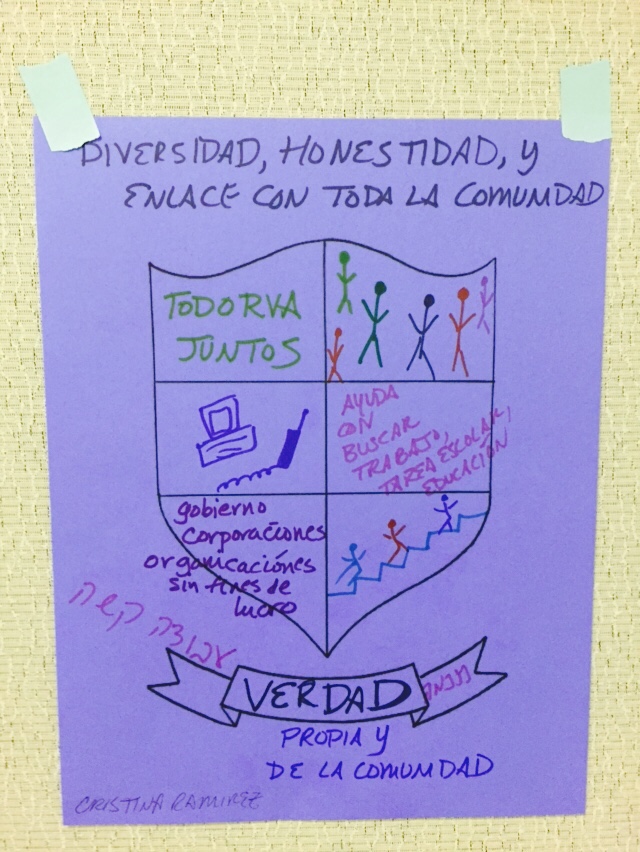 DIVERSIDAD, HONESTIDAD, Y
ENLACE CON TODA LA COMUNIDAD
TODO RVA
JUNTOS
AYUDA
CON
BUSCAR
TRABAJO,
TAREA ESCOLAR,
EDUCACIÓN
gobierno
corporaciónes
organicaciónes
sin fines de
lucro
עבודה קשה
VERDAD
PROPIA Y
DE LA COMUNIDAD
CRISTINA RAMIREZ